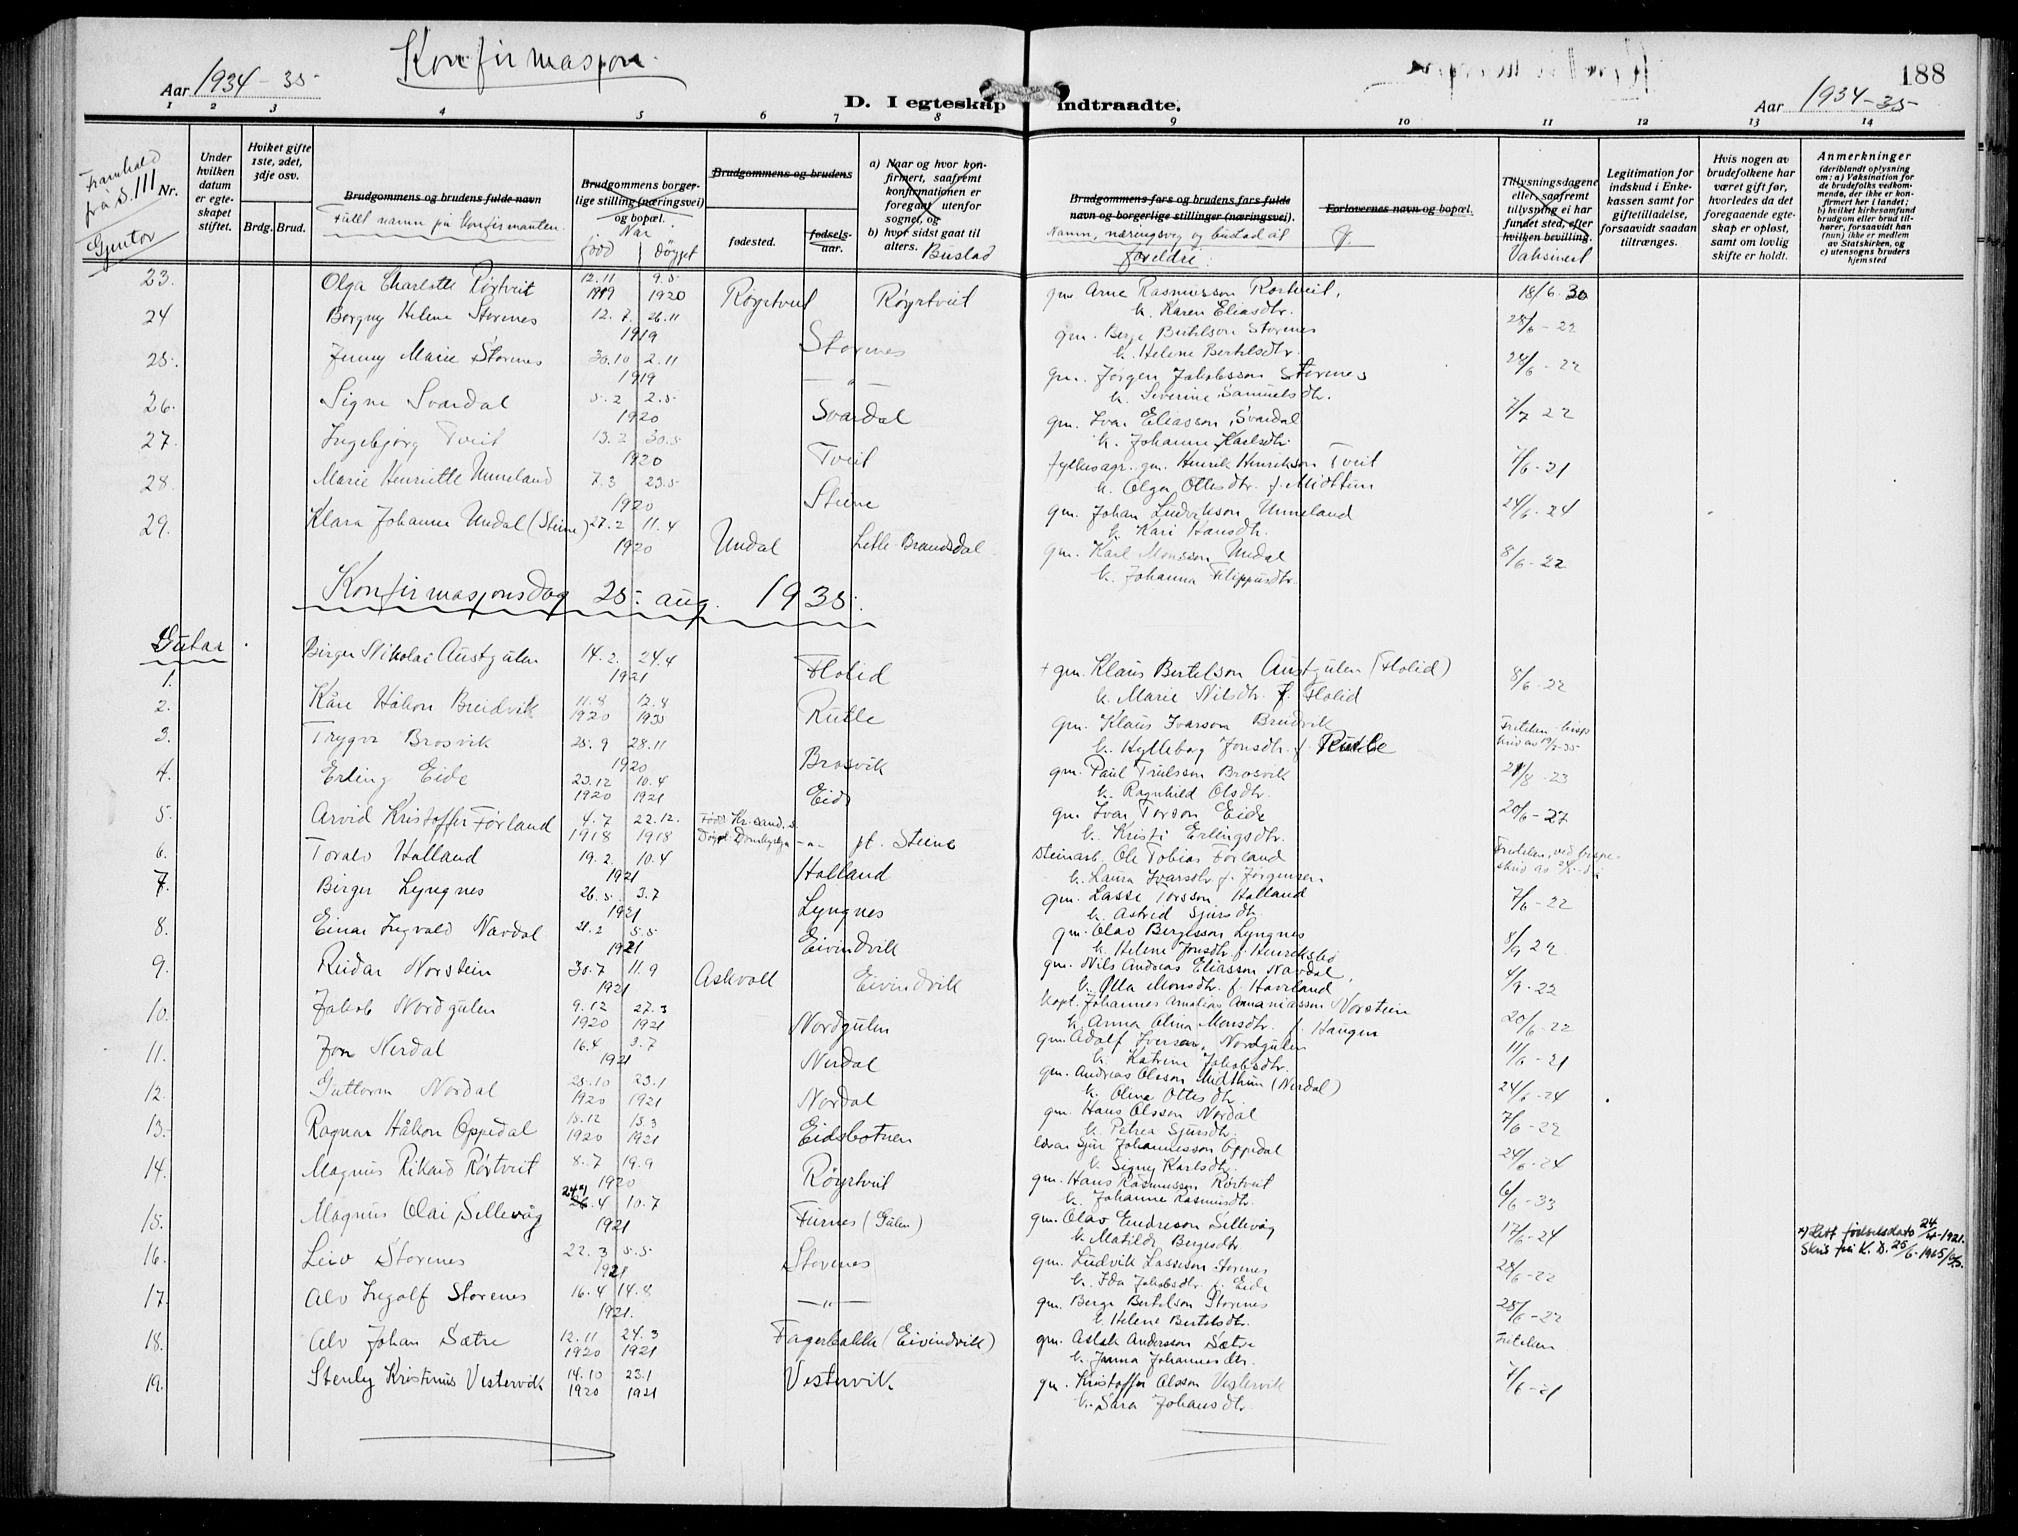 Konfirmasjon.
188
Aar 1934-35
D. I egteskap indtraadte.
Aar 1934-35
1 2 3 4 5 6 7 8 9 10 11 12 13 14
Framhald frå s. 111
Gjentor
Nr.
Under hvilken datum er egteskapet stiftet.
Hviket gifte 1ste, 2det, 3dje osv.
Brdg. Brud.
Brudgommens og brudens fulde navn
Fullt namn på konfirmanten.
Brudgommens borgerlige stilling (næringsvei) og bopæl.
Når
född døypt
Brudgommens og brudens
fødested.
fødselsaar.
a) Naar og hvor konfirmert, saafremt konfirmationen er foregaat utenfor sognet, og
b) hvor sidst gaat til alters.
Bustad
Brudgommens fars og brudens fars fulde navn og borgerlige stillinger (næringsvei).
Namn, næringsveg og bustad åt foreldre.
Forlovernes navn og bopæl.
Tillysningsdagene eller, saafremt tillysning ei har fundet sted, efter hvilken bevilling.
Vaksinert
Legitimation for indskud i Enkekassen samt for giftetilladelse, forsaavidt saadan tiltrænges.
Hvis nogen av brudefolkene har været gift før, hvorledes da det foregaaende egteskap er opløst, samt om lovlig skifte er holdt.
Anmerkninger
(deriblandt oplysning om: a) Vaksination for de brudefolks vedkommende, der ikke er konfirmert her i landet; b) hvilket kirkesamfund brudgom eller brud tilhører, forsaavidt han (hun) ikke er medlem av Statskirken, og c) utensogns bruders hjemsted
23. Olga Charlotte Rørtveit 12.11 1919 9.5 1920 Røyrtveit Røyrtveit gm. Arne Rasmusson Rørtveit, 18/6-30
k. Karen Eliasdtr.
24 Borgny Helene Storenes 12.7. 26.11 1919 Storenes gm. Berge Bertelson Storenes 28/6-22
k. Helene Bertelsdtr.
25. Jenny Marie Storenes 30.10 2.11 1919 —"— gm. Jørgen Jakobsson Storenes 24/6-22
k. Severine Samuelsdtr.
26. Signe Svardal 5.2 2.5 1920 Svardal gm. Ivar Eliasson Svardal 2/7 22
k. Johanne Karlsdtr.
27. Ingebjørg Tveit 13.2 30.5 1920 Tveit fylkesagr. gm. Henrik Henrikson Tveit 7/6-21
k. Olga Ottesdtr. f. Midttun
28. Marie Henriette Unneland 7.3 23.5 1920 Steine gm. Johan Ludvikson Unneland 24/6-24
k. Kari Hansdtr.
29. Klara Johanna Undal (Steine) 27.2 11.4 1920 Undal Letle Brandsdal gm. Karl Monsson Undal 8/6-22
k. Johanna Filippusdtr.
Konfirmasjonsdag 25. aug. 1935.
Gutar.
1. Birger Nikolai Austgulen 14.2. 24.4 1921 Flolid + gm. Klaus Bertelson Austgulen (Flolid) 8/6-22
k. Marie Nilsdtr. f. Flolid
2. Kåre Håkon Breidvik 11.8 1920 12.8 1935 Rutle gm. Klaus Ivarson Breidvik
k. Hylleborg Jonsdtr. f. Rutle
3. Trygve Brosvik 25.9 28.11 1920 Brosvik gm. Paul Trulsson Brosvik 21/8-23
k. Ragnhild Olsdtr.
4. Erling Eide 23.12 1920 10.4 1921 Eide gm. Ivar Torson Eide 20/6-27
k. Kristi Erlingsdtr.
5. Arvid Kristoffer Førland 4.7 1918 22.12. 1918 Født Kr.sand. S. Døypt Domkyrkja —"— pt. Steine steinarb. Ole Tobias Førland
k. Laura Ivarsdtr. f. Jørgensen
6. Toralv Halland 19.2 10.4 1921 Halland gm. Lasse Torsson Halland 7/6-22
k. Astrid Sjursdtr.
7. Birger Lyngnes 26.5. 3.7 1921 Lyngnes gm. Olav Bergesson Lyngnes 8/9 22
k. Helene Jonsdtr. f. Henriksbø
8. Einar Ingvald Navdal 21.2 5.5 1921 Eivindvik gm. Nils Andreas Eliasson Navdal, 4/9-22
k. Otta Monsdtr. f. Haveland
9. Reidar Norstein 30.7 11.9 1921 Askvoll Eivindvik kapt. Johannes Amalias Annaniasson Norstein 20/6-22
k. Anna Olina Monsdtr. f. Haugen
10. Jakob Nordgulen 9.12 1920 27.3 1921 Nordgulen gm. Adolf Iverson Nordgulen 11/6-21
k. Katrine Jakobsdtr.
11. Jon Nerdal 16.4 3.7 1921 Nerdal gm. Andreas Olsson Midthun (Nerdal) 24/6-24
k. Olina Ottesdtr.
12. Guttorm Nordal 25.10 1920 23.1 1921 Nordal gm. Hans Olsson Nordal 7/6-22
k. Petrea Sjursdtr.
13. Ragnar Håkon Oppedal 18.12 1920 13.3 1921 Eidsbotnen lærar Sjur Johannesson Oppedal 24/6-24
k. Signy Karlsdtr.
14. Magnus Rikard Rørtveit 8.7 19.9 1920 Røyrtveit gm. Hans Rasmusson Rørtveit 6/6-33
k. Johanne Rasmusdtr.
15. Magnus Olai Sellevåg 24x) 26.4 10.7 1921 Furnes (Gulen) gm. Olav Endreson Sellevåg 17/6-24
k. Matilde Bergesdtr
x) Rett fødselsdato 24/4-1921. Skriv frå K. D. 25/6-1965/65.
16. Leiv Storenes 22.3 5.5 1921 Storenes gm. Ludvik Lasseson Storenes 28/6-22
k. Ida Jakobsdtr. f. Eide
17. Alv Ingolf Storenes 16.4 14.8 1921. —"— gm. Berge Bertelson Storenes 28/6-22
k. Helene Bertelsdtr.
18. Alv Johan Sætre 12.11 1920 24.3 1921 Fagerbakke (Eivindvik) gm. Aslak Andersson Sætre Friteken
k. Janna Johannesdtr.
19. Stenly Kristinus Vestervik 14.10 1920 23.1 1921 Vestervik gm. Kristoffer Olsson Vestervik 7/6-21
k. Sara Johansdtr.